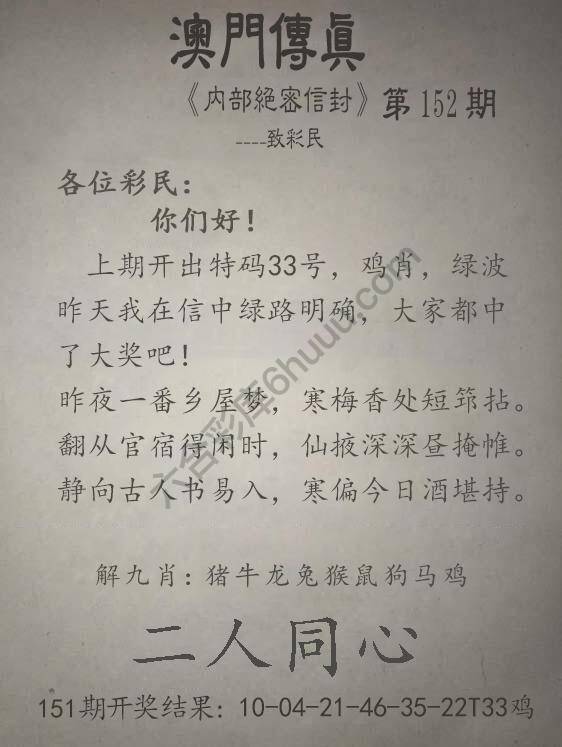 澳門傳眞
《内部絕密信封》第152期
----致彩民
各位彩民：
你们好！
上期开出特码33号，鸡肖，绿波
昨天我在信中绿路明确，大家都中
了大奖吧！
昨夜一番乡屋梦，寒梅香处短筇拈。
翻从官宿得闲时，仙掖深深昼掩帷。
静向古人书易入，寒偏今日酒堪持。
六合彩库6huuu.com
解九肖：猪牛龙兔猴鼠狗马鸡
二人同心
151期开奖结果：10-04-21-46-35-22T33鸡